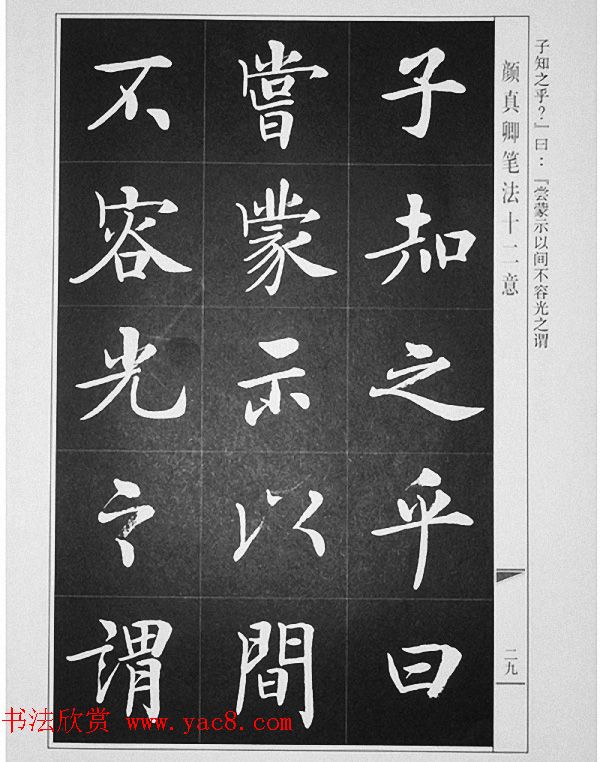 子知之乎？』曰：『尝蒙示以间不容光之谓
颜真卿笔法十二意
二九
子知之乎曰
嘗蒙示以間
不容光之謂
书法欣赏 www.yac8.com